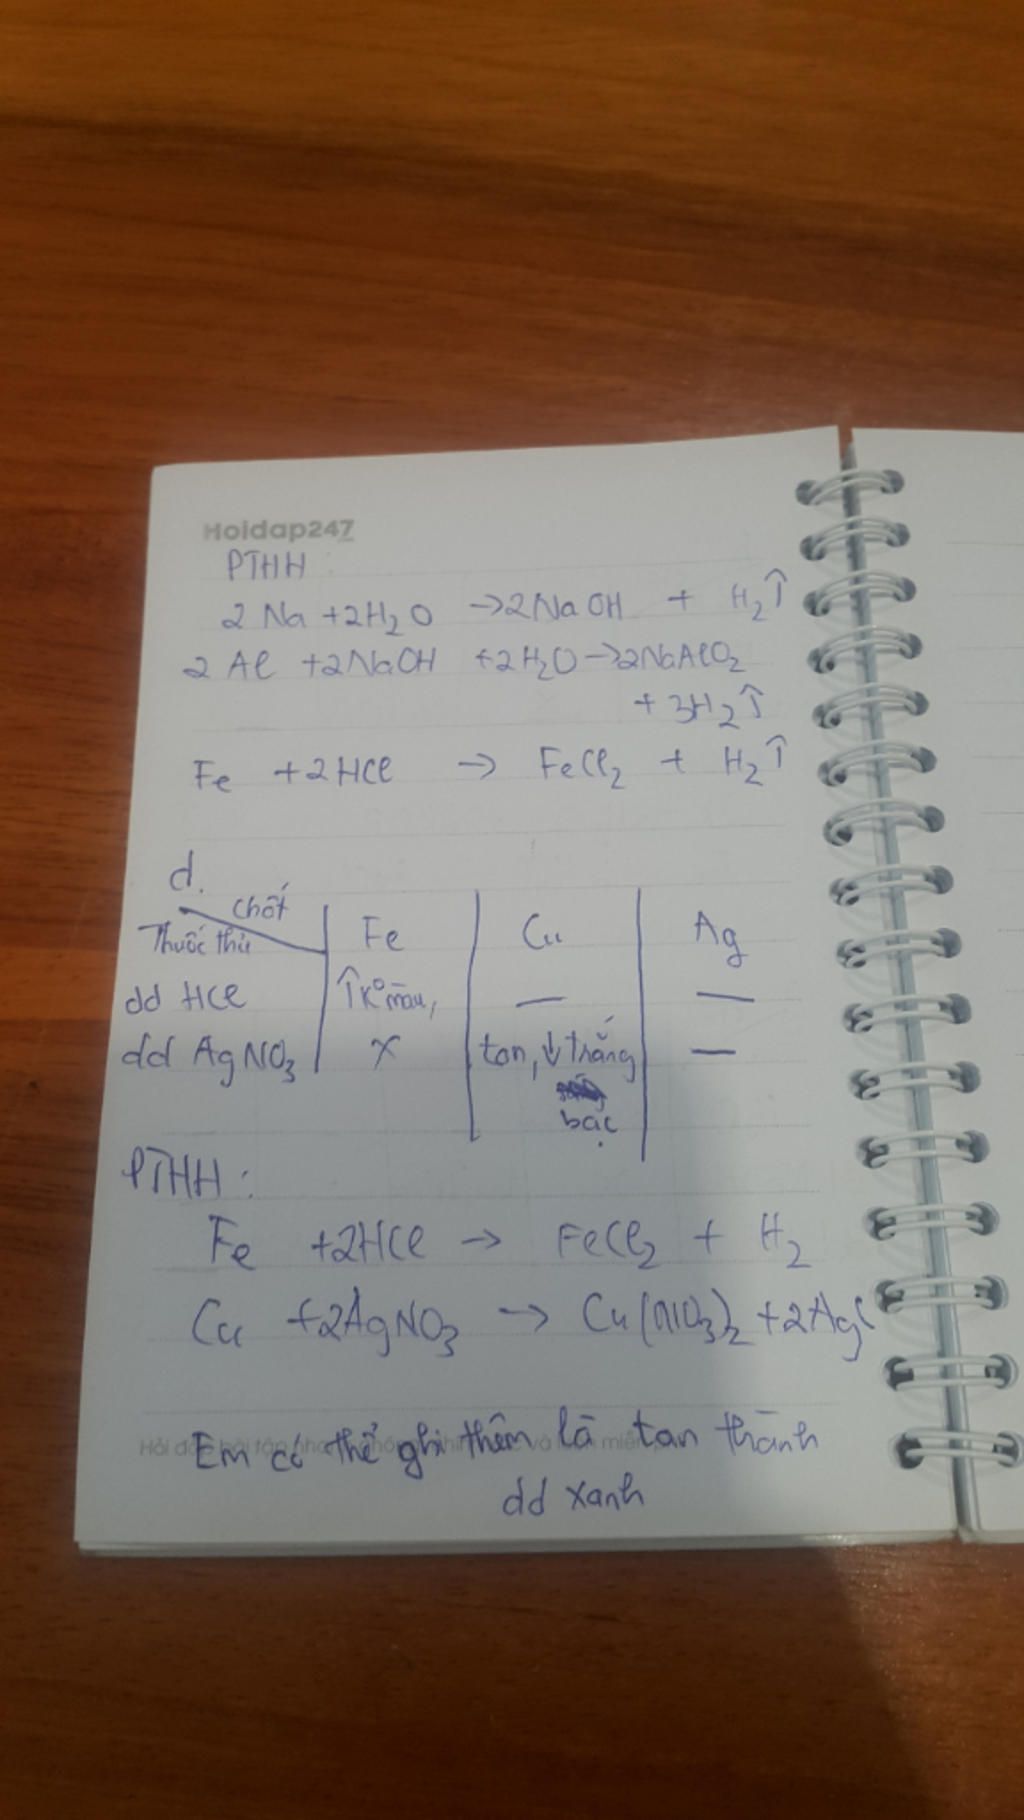 Hoidap247
PTHH:
2 Na + 2H₂O → 2NaOH + H₂↑
2 Al + 2NaOH + 2H₂O → 2NaAlO₂
+ 3H₂↑
Fe + 2HCl → FeCl₂ + H₂↑
d.
chất
Thuốc thử Fe Cu Ag
dd HCl ↑ k° màu, — —
dd AgNO₃ x tan, ↓ trắng —
bạc
PTHH:
Fe + 2HCl → FeCl₂ + H₂
Cu + 2AgNO₃ → Cu(NO₃)₂ + 2Ag↓
Em có thể ghi thêm là tan thành
dd xanh